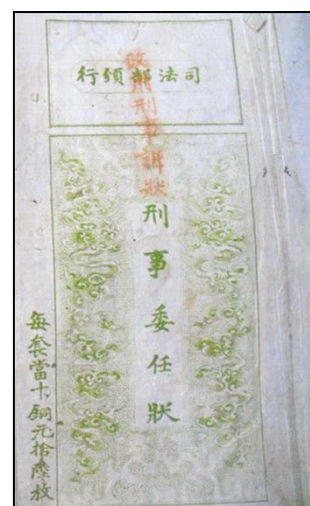 司法部頒行
改用刑事訴狀
刑事委任狀
每套當十銅元拾陸枚